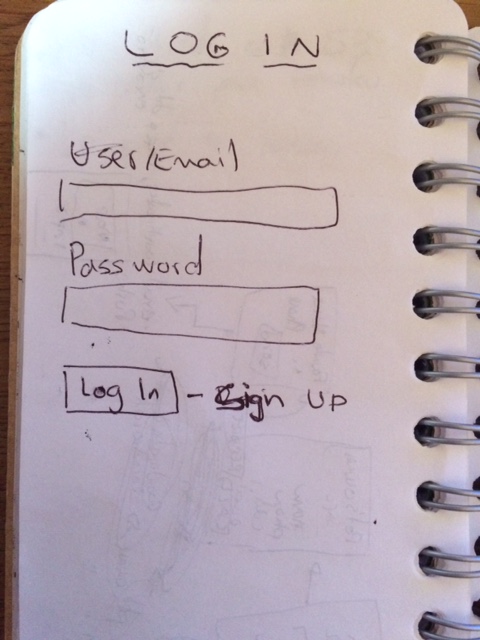 LOG IN
User/Email
Password
Log In - Sign Up